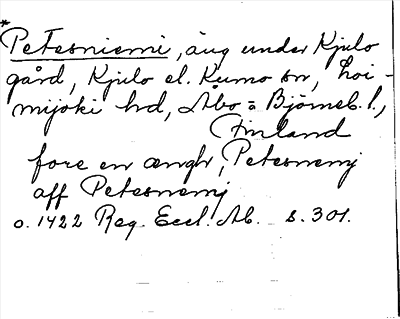 *
Petesniemi, äng under Kjulo
gård, Kjulo el. Kumo sn, Loi-
mijoki hd, Åbo o Björneb. l.,
Finland
fore en ængh, Petesnemj
aff Petesnemj
o. 1422 Reg. Eccl. Ab. s. 301.